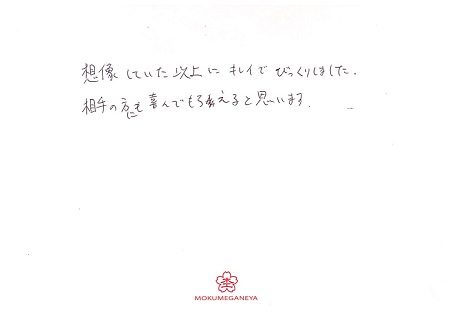 想像していた以上に キレイで びっくりしました.
相手の方にも喜んでもらえると思います.
MOKUMEGANEYA